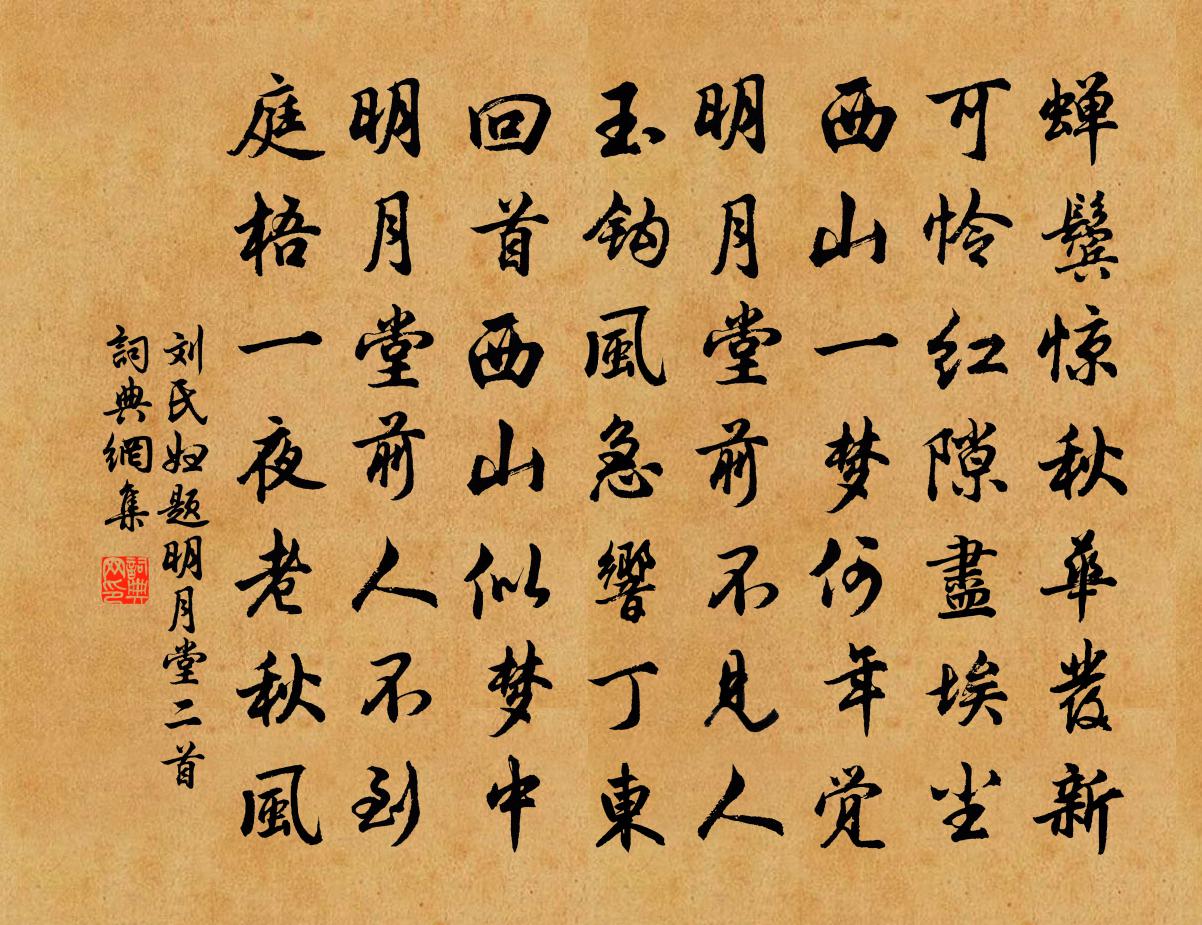 蝉鬓惊秋華發新
可怜红隙盡埃尘
西山一梦何年觉
明月堂前不見人
玉钩風急響丁東
回首西山似梦中
明月堂前人不到
庭梧一夜老秋風
刘氏妇题明月堂二首
詞典網集
詞典網印